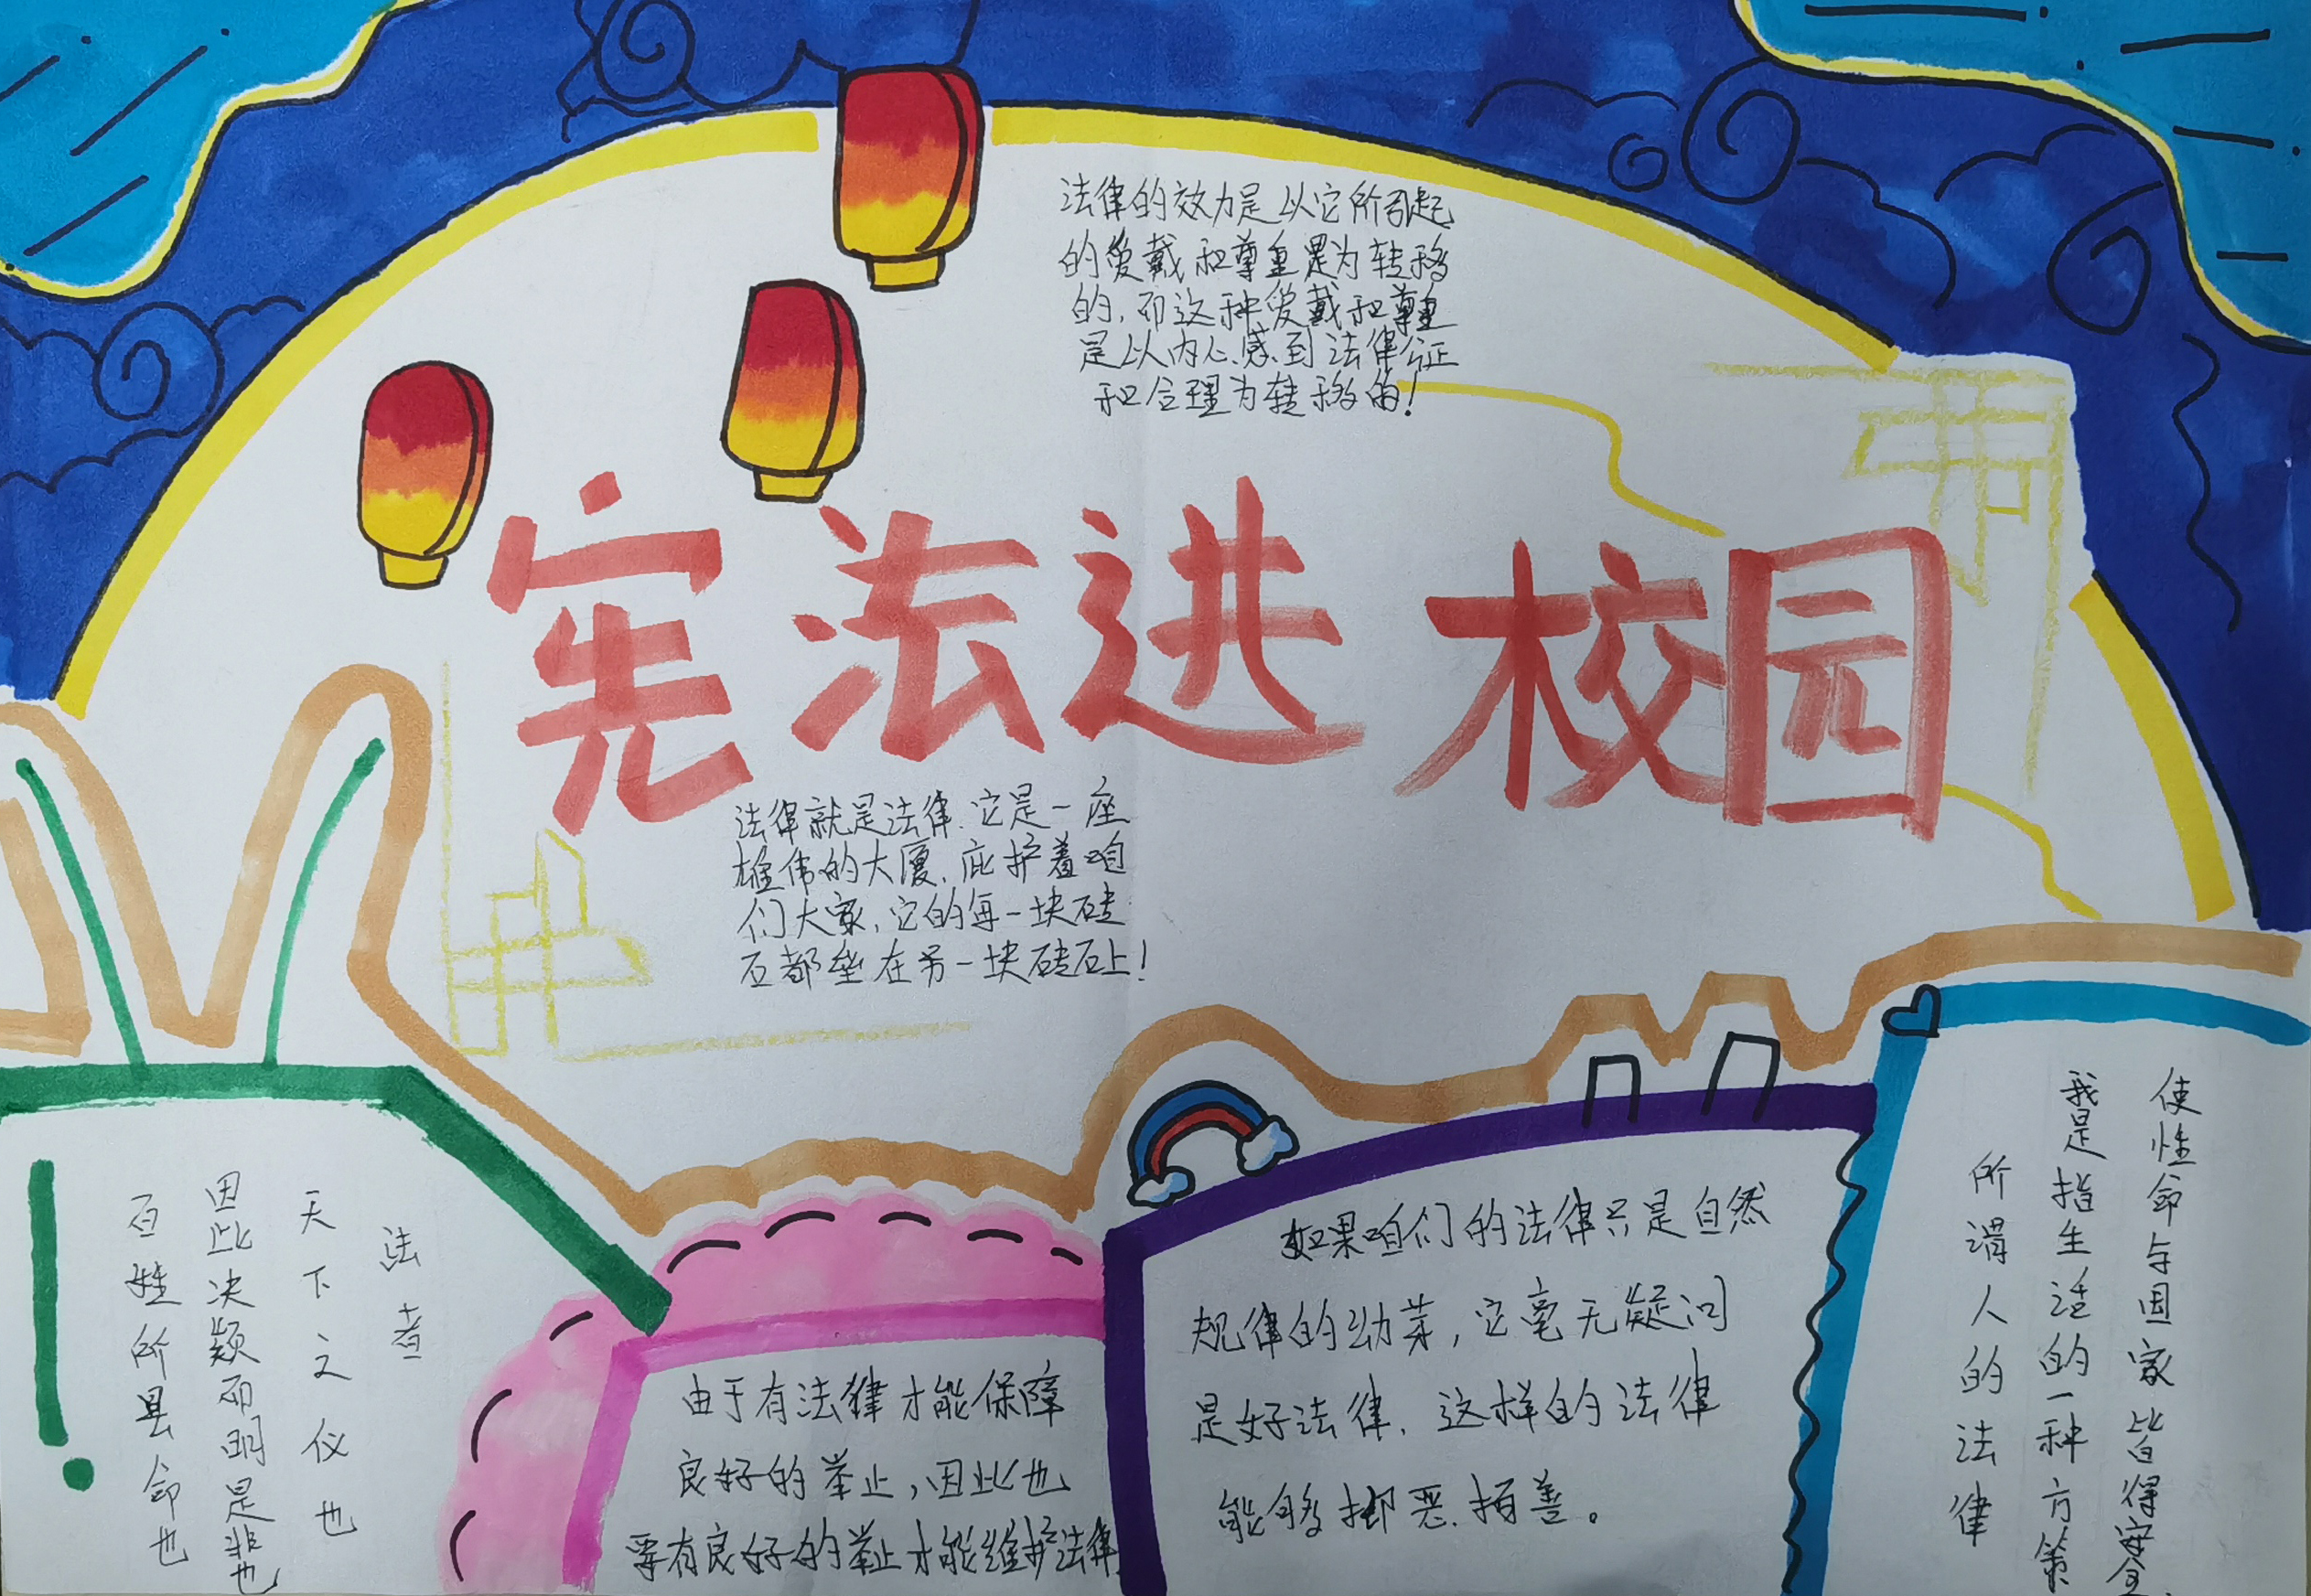 法律的效力是以它所引起
的爱戴和尊重是为转移
的，而这种爱戴和尊重
是以内心感到法律公正
和合理为转移的！
宪法进校园
法律就是法律，它是一座
雄伟的大厦，庇护着咱
们大家，它的每一块砖
石都垒在另一块砖石上！
法者
天下之仪也
因此决疑而明是非也
百姓所县命也
由于有法律才能保障
良好的举止，因此也
要有良好的举止才能维护法律
如果咱们的法律只是自然
规律的幼芽，它毫无疑问
是好法律，这样的法律
能够抑恶扬善。
所谓人的法律
我是指生活的一种方策
使性命与国家皆得安全.